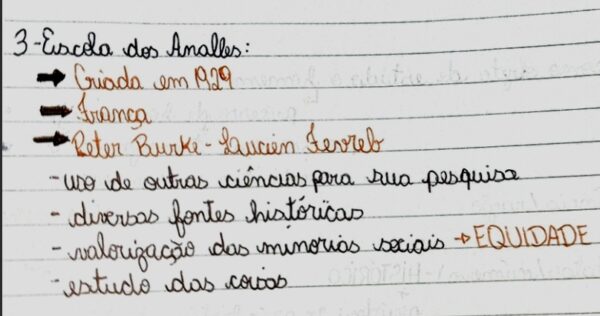 3-Escola dos Analles:
→ Criada em 1929
→ França
→ Peter Burke - Laucien Fevreb
- uso de outras ciências para sua pesquisa
- diversas fontes históricas
- valorização das minorias sociais → EQUIDADE
- estudo das coisas